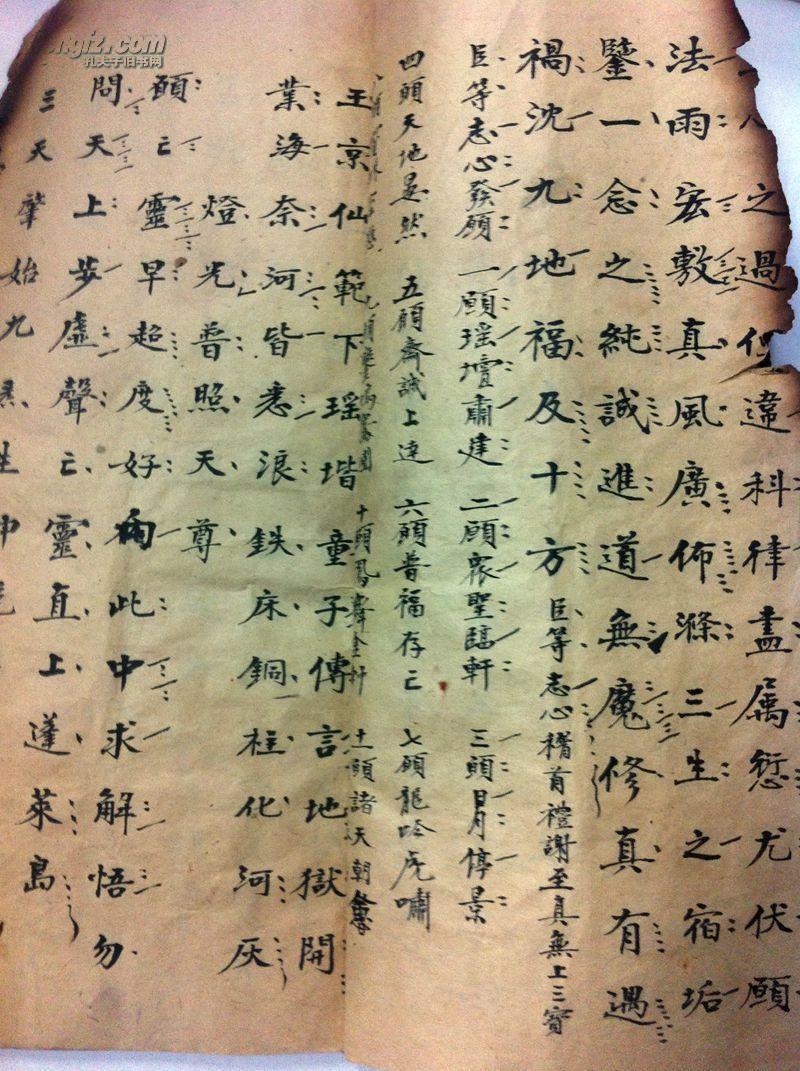 之過但違科律盡属愆尤伏願
法雨宏敷真風廣佈滌三生之宿垢
鑒一念之純誠進道無魔修真有遇
禍沈九地福及十方臣等志心稽首禮謝至真無上三寶
臣等志心發願 一願瑶壇肅建 二願衆聖臨軒 三願日月停景
四願天地晏然 五願齋誠上達 六願普福存亡 七願龍吟虎嘯
十願鳳舞金 十一願諸天朝
王京仙範下瑶堦童子傳言地獄開
業海奈河皆悉浪鉄床銅柱化河灰
燈光普照天尊
願亡靈早超度好向此中求解悟勿
問天上步虛聲亡靈直上蓬萊島
三天肇始九
生中
孔夫子旧书网